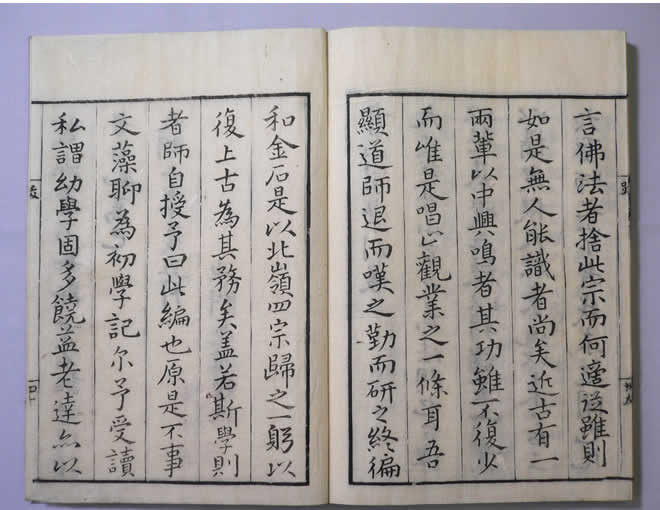 言佛法者捨此宗而何適從雖則
如是無人能識者尚矣近古有一
兩輩以中興鳴者其功雖不復少
而唯是唱止觀業之一條耳吾
顯道師退而嘆之勤而研之終徧
和金石是以北嶺四宗歸之一躬以
復上古為其務矣盖若斯學則
者師自授予曰此編也原是不事
文藻聊為初學記尔予受讀
私謂幼學固多饒益老達亦以